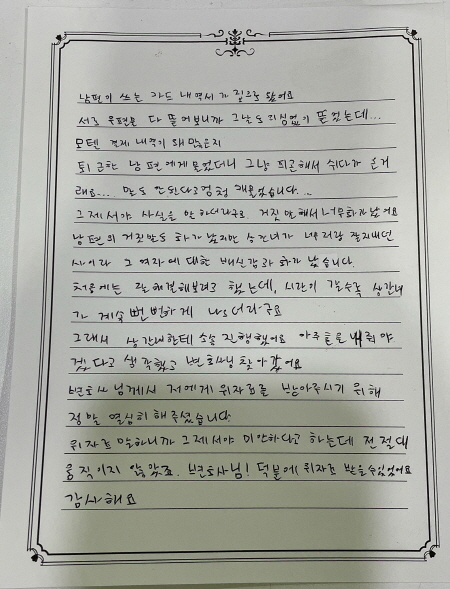 남편이 쓰는 카드 내역서가 집으로 왔어요
서로 우편물 다 뜯어보니까 그날도 의심없이 뜯었는데...
모텔 결제 내역이 왜 많은지
퇴근한 남편에게 물었더니 그냥 피곤해서 쉬다가 온거
래요... 말도 안된다고 엄청 캐물었습니다...
그제서야 사실을 말하더라구요 거짓말해서 너무화가났어요
남편의 거짓말도 화가 났지만 상간녀가 너무 잘지내던
사이라 그 여자에 대한 배신감과 화가 났습니다.
처음에는 잘 해결해보려고 했는데, 시간이 갈수록 상간녀
가 계속 뻔뻔하게 나오더라구요
그래서 상간녀한테 소송 진행했어요 아주 혼을 내줘야
겠다고 생각했고 변호사님 찾아갔어요
변호사님께서 저에게 위자료를 받아주시기 위해
정말 열심히 해주셨습니다
위자료 말하니까 그제서야 미안하다고 하는데 전 절대
움직이지 않았죠. 변호사님! 덕분에 위자료 받을수있었어요
감사해요